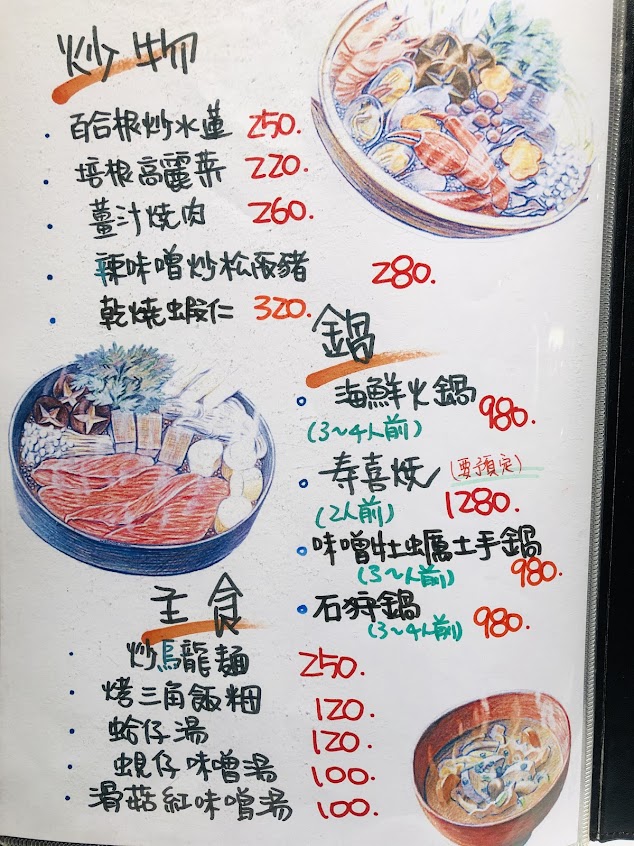 炒物
百合根炒水蓮 250.
培根高麗菜 220.
薑汁燒肉 260.
辣味噌炒松阪豬 280.
乾燒蝦仁 320.
鍋
海鮮火鍋 980.
(3~4人前)
寿喜燒 (要預定)
(2人前) 1280.
味噌牡蠣土手鍋
(3~4人前) 980.
石狩鍋 980.
(3~4人前)
主食
炒烏龍麵 250.
烤三角飯糰 120.
蛤仔湯 120.
蜆仔味噌湯 100.
滑菇紅味噌湯 100.